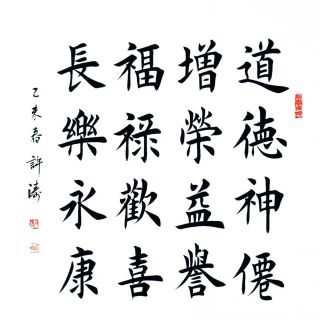 道德神僊
增榮益譽
福祿歡喜
長樂永康
乙未春許濤